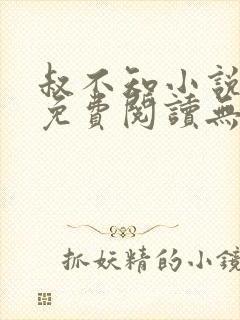 叔不知小說
免費閱讀無
抓妖精的小鏡